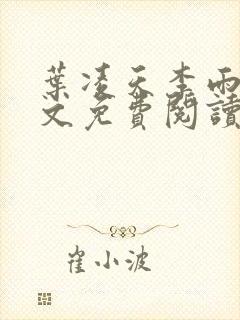 葉凌天李雨
文免費閱讀
崔小波